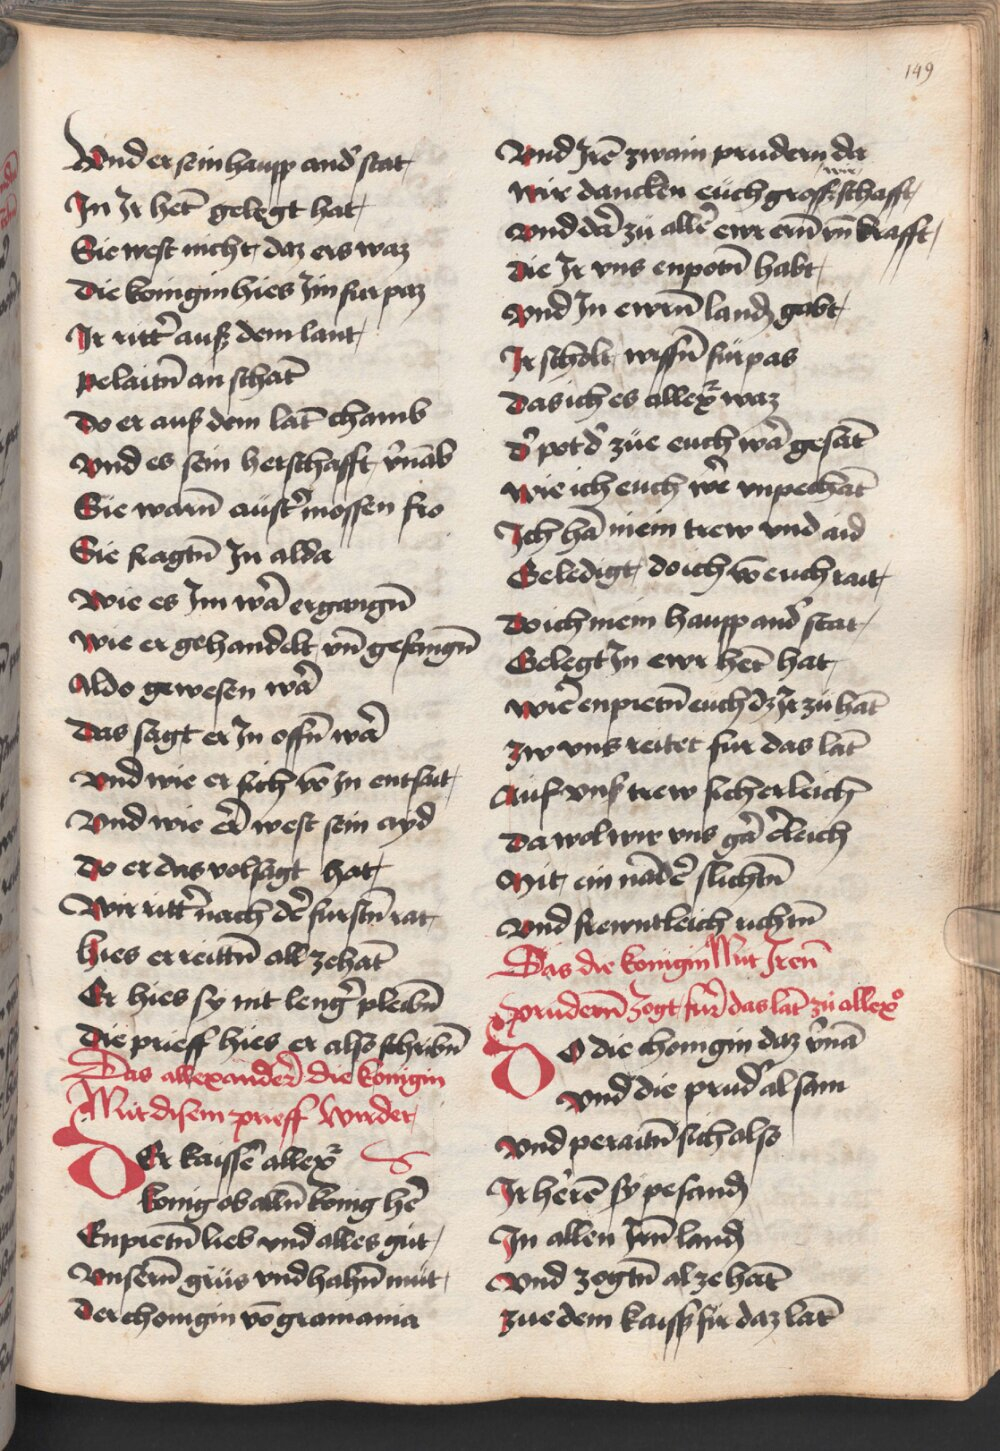 149
Vnd er sein haupp and᷎ stat
In Ir het̅ gelegt hat
Sie west nicht daz ers waz
Die konigin hies Im fur paz
Ir ritt᷎ auß dem lant
pelaitn̅ an schat̅
Do er auß dem lat̅ chamb
Vnd es sein herschafft v᷎nab
Sie warn̅ aust᷎ mossen fro
Sie fragtn̅ In alda
Wie es Im wa᷎ ergangn̅
Wie er gehandelt vn̅ gefangn̅
Aldo gewesen wa᷎
Das sagt er In offn̅ wa᷎
Vnd wie er sich vo̅ In entsait
Vnd wie er᷎ west sein ayd
Do er das volsagt hat
Wir ritt᷎ nach de᷎ furstn̅ rat
hies er reittn̅ all zehat̅
Er hies sy nit leng᷎ pleibn̅
Die prieff hies er also schribn̅
Das allexander᷎ die konigin
Mit disem prieff wirdet
Der kaisse᷎ allex᷎
konig ob alln̅ konig he᷎
Enpietn̅ lieb vnd alles gut
Vnsern̅ grüs vnd haln̅ mut
Der chonigin vo̅ gramania
Vnd Ire̅ zwain prudern da
wir
Wir dancken euch grosz schafft
Vnd da᷎ zu alle̅ ewr ern̅ vn̅ krafft
Die Ir vns enpotn̅ habt
Vnd In ewrn̅ land gabt
Ir scholt wissn̅ fürpas
Das ich es allex᷎ waz
D᷎ pot d᷎ züe euch wa᷎ gesat̅
Wie ich euch we᷎ vnpechat̅
Ich ha̅ mein trew vnd aid
Geledigt do ich vo̅ euch rait
Do ich mein haupp and᷎ stat
Gelegt In ewr het̅ hat
Wir᷎ enpietn̅ euch dz Ir zü hat̅
Zw vns reitet fur das lat̅
Auf vnß trew sicherleich
Da wol wir vns ga᷎ e᷎leich
Mit ein nad᷎e᷎ slichtn̅
Vnd frewntleich richtn̅
Das die konigin Mit Iren̅
prudern̅ zogt fur᷎ das lat̅ zü allex᷎
Do die chonigin daz v᷎na̅
Vnd die prud᷎ al sam
Vnd peraitn̅ sich also
Ir he᷎re̅ sy pesand
In allen Irn̅ land
Vnd zogtn̅ al ze hat̅
Zue dem kaiss᷎ fur daz lat̅